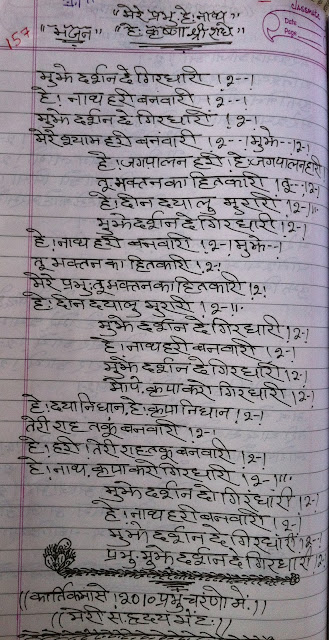 "मेरे प्रभु हे! नाथ"
CLASSMATE
Date
Page
157
"भजन"
"हे! कृष्णा श्री राधे"
मुझे दर्शन दे गिरधारी !2--!
हे! नाथ हरी बनवारी !2--!
मुझे दर्शन दे गिरधारी !2-!
मेरे श्याम हरी बनवारी !2--!मुझे--!2-!
हे! जगपालन हरी! हे जगपालनहारी!
तू भक्तन का हितकारी !2--!2-!
हे! दीन दयालु मुरारी !2-!
मुझे दर्शन दे गिरधारी !2-!
हे! नाथ हरी बनवारी !2-!मुझे--!
तू भक्तन का हितकारी !2-!
मेरे प्रभु तू भक्तन का हितकारी !2!
हे! दीन दयालु मुरारी !2-!!"
मुझे दर्शन दे गिरधारी !2-!
हे! नाथ हरी बनवारी !2-!
मुझे दर्शन दे गिरधारी !2-!
कृपा करो गिरधारी !2-!
हे! दया निधान, हे! कृपा निधान !2-!
तेरी राह तकूं बनवारी !2-!
हे! हरी तेरी राह तकूं बनवारी !2-!
हे! नाथ, कृपा करो गिरधारी !2-!!"
मुझे दर्शन दो गिरधारी !2-!
हे! नाथ हरी बनवारी !2-!
मुझे दर्शन दे गिरधारी !2-!
प्रभु मुझे दर्शन दे गिरधारी !2-!
((कार्तिकमासे !2010 प्रभु चरणों में.))
((मेरी स.ह्रदय भेंट:))